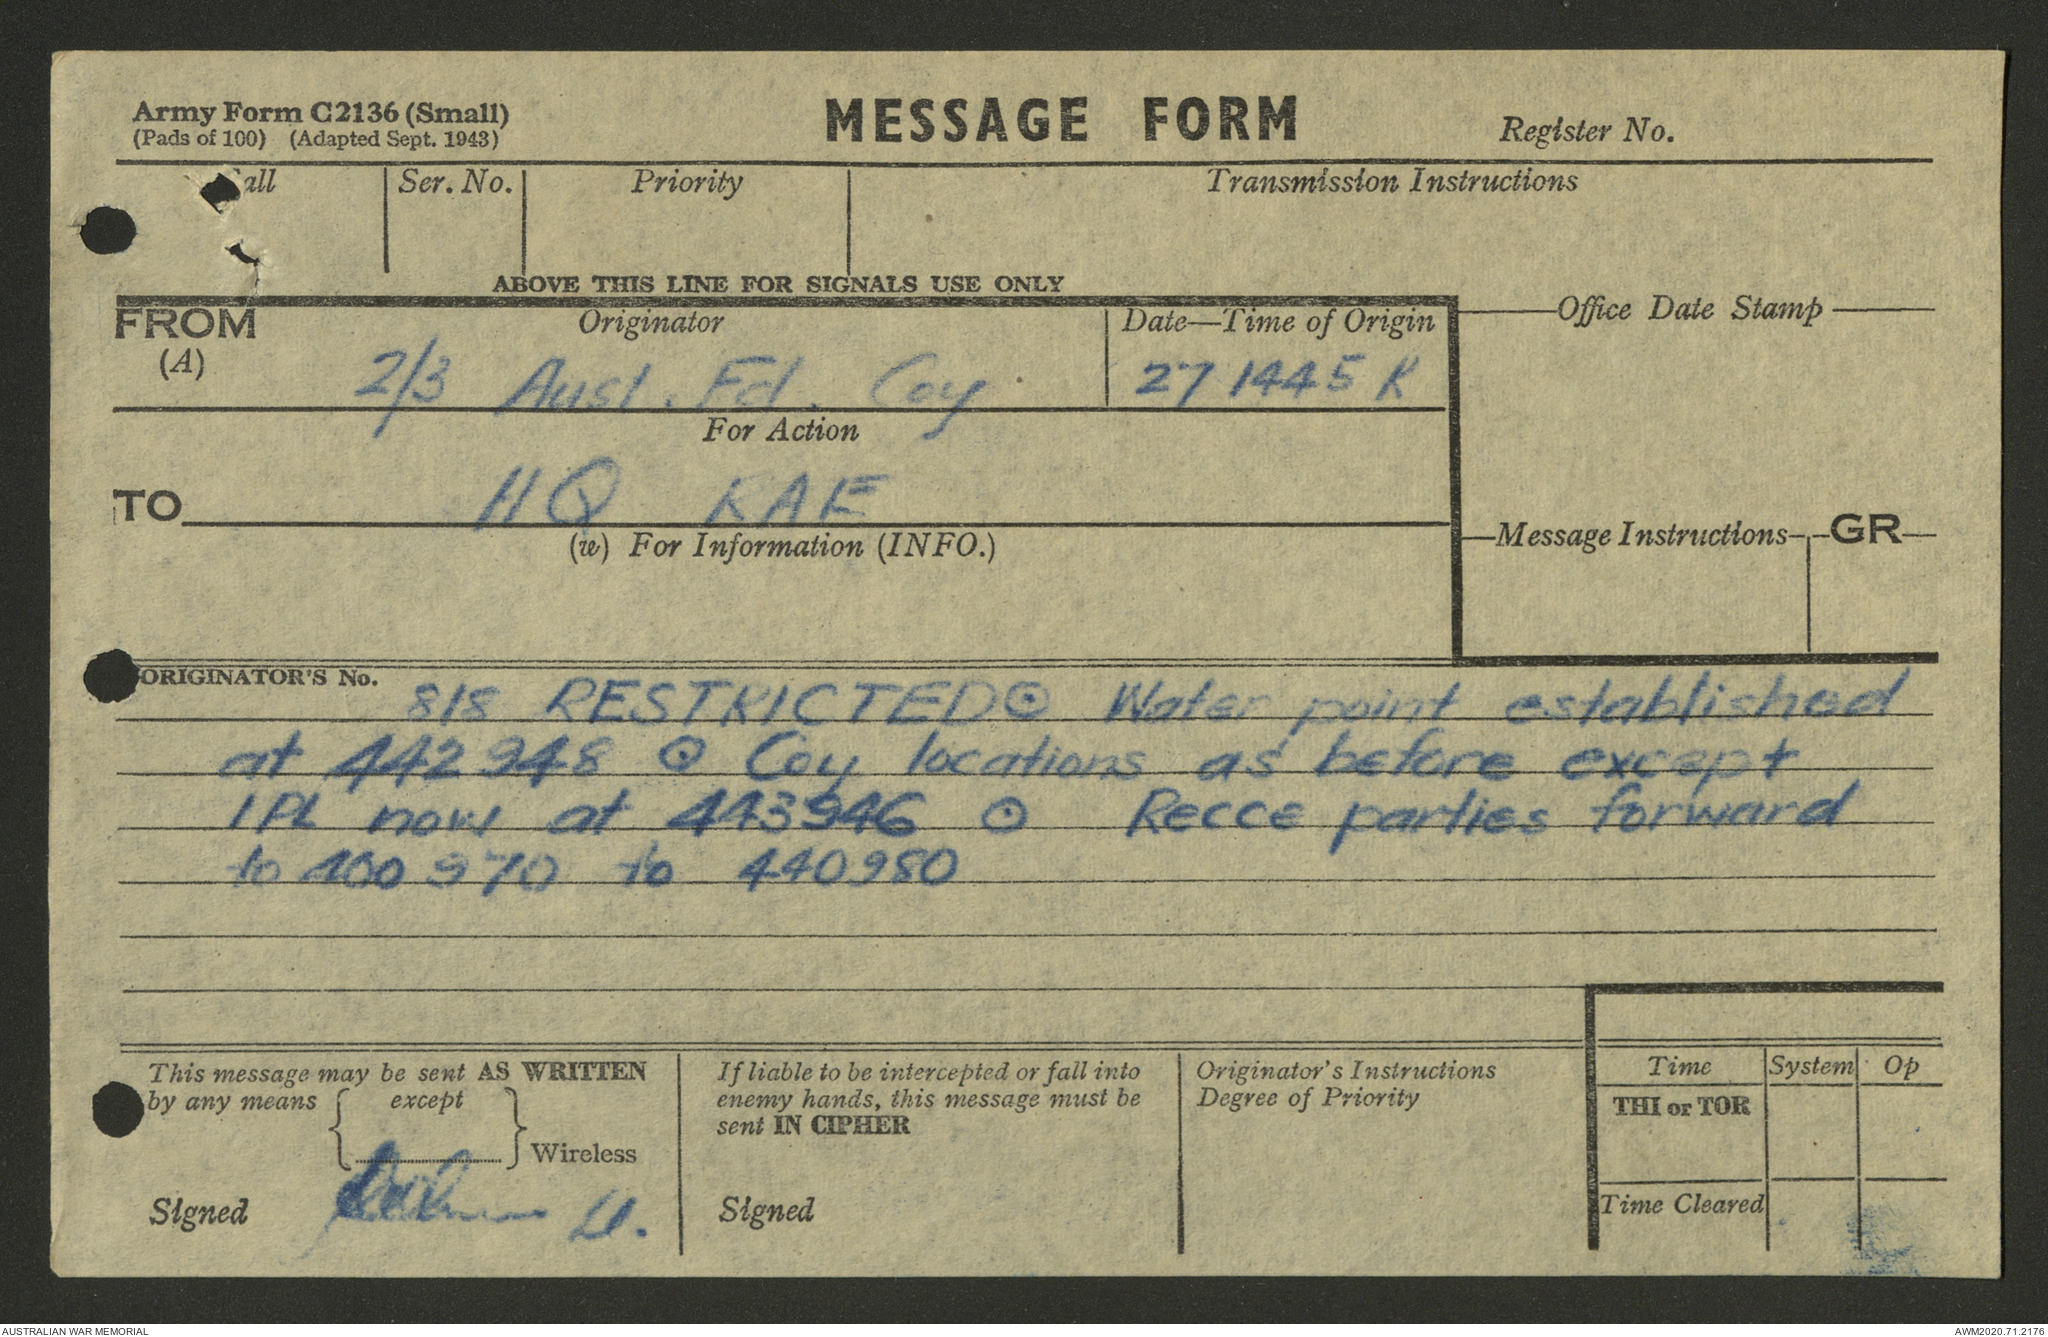 Army Form C2136 (Small)
(Pads of 100) (Adapted Sept. 1943)
MESSAGE FORM
Register No.
Call
Ser. No.
Priority
Transmission Instructions
ABOVE THIS LINE FOR SIGNALS USE ONLY
FROM
(A)
Originator
2/3 Aust. Fd. Coy.
Date—Time of Origin
27 1445 K
Office Date Stamp
For Action
TO
HQ RAE
(w) For Information (INFO.)
Message Instructions
GR
ORIGINATOR'S No.
818 RESTRICTED ⊙ Water point established
at 442948 ⊙ Coy locations as before except
1 PL now at 443946 ⊙ Recce parties forward
to 400970 to 440980
This message may be sent AS WRITTEN
by any means { except } Wireless
Signed
Lt.
If liable to be intercepted or fall into
enemy hands, this message must be
sent IN CIPHER
Signed
Originator's Instructions
Degree of Priority
Time
System
Op
THI or TOR
Time Cleared
AUSTRALIAN WAR MEMORIAL
AWM2020.71.2176